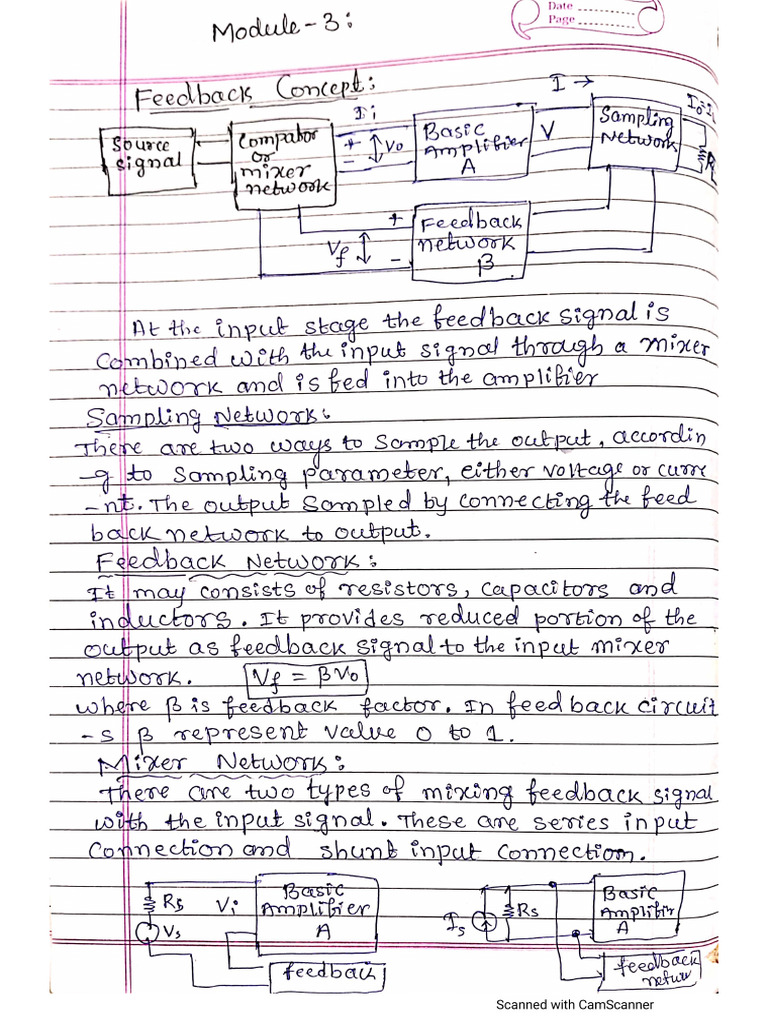 Date ............
Page ............
Module-3:
Feedback Concept:
Source signal
Compator or mixer network
Ii
+
-
Vo
Basic Amplifier A
V
I →
Sampling Network
Io
R
+
Vf
-
Feedback network β
At the input stage the feedback signal is
combined with the input signal through a mixer
network and is fed into the amplifier
Sampling Network:
There are two ways to sample the output, accordin
-g to sampling parameter, either voltage or curre
-nt. The output sampled by connecting the feed
back network to output.
Feedback Network:
It may consists of resistors, capacitors and
inductors. It provides reduced portion of the
output as feedback signal to the input mixer
network. Vf = βVo
where β is feedback factor. In feedback circuit
-s β represent value 0 to 1.
Mixer Network:
There are two types of mixing feedback signal
with the input signal. These are series input
connection and shunt input connection.
Rs
Vs
Vi
Basic Amplifier A
feedback
Is
Rs
Basic Amplifir A
feedback netw
Scanned with CamScanner